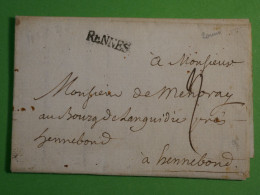 RENNES
à Monsieur
Monsieur de Menoray
au Bourg de Languidic près
hennebond
à hennebond